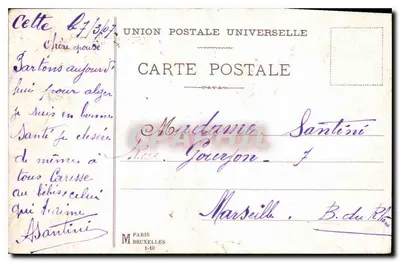 Cette le 7/3/07
chère épouse
Partons aujourd
hui pour alger
je suis en bonne
Santé je désire
de même a
tous Caresse
au bébis celui
qui t'aime
ASantini
UNION POSTALE UNIVERSELLE
CARTE POSTALE
Madame Santini
Rue Gourjon 7
Marseille. B. du Rhône
M PARIS
BRUXELLES